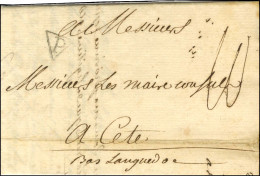 A Messieurs
Messieurs Les maire consuls
A Cete
Bas Languedoc